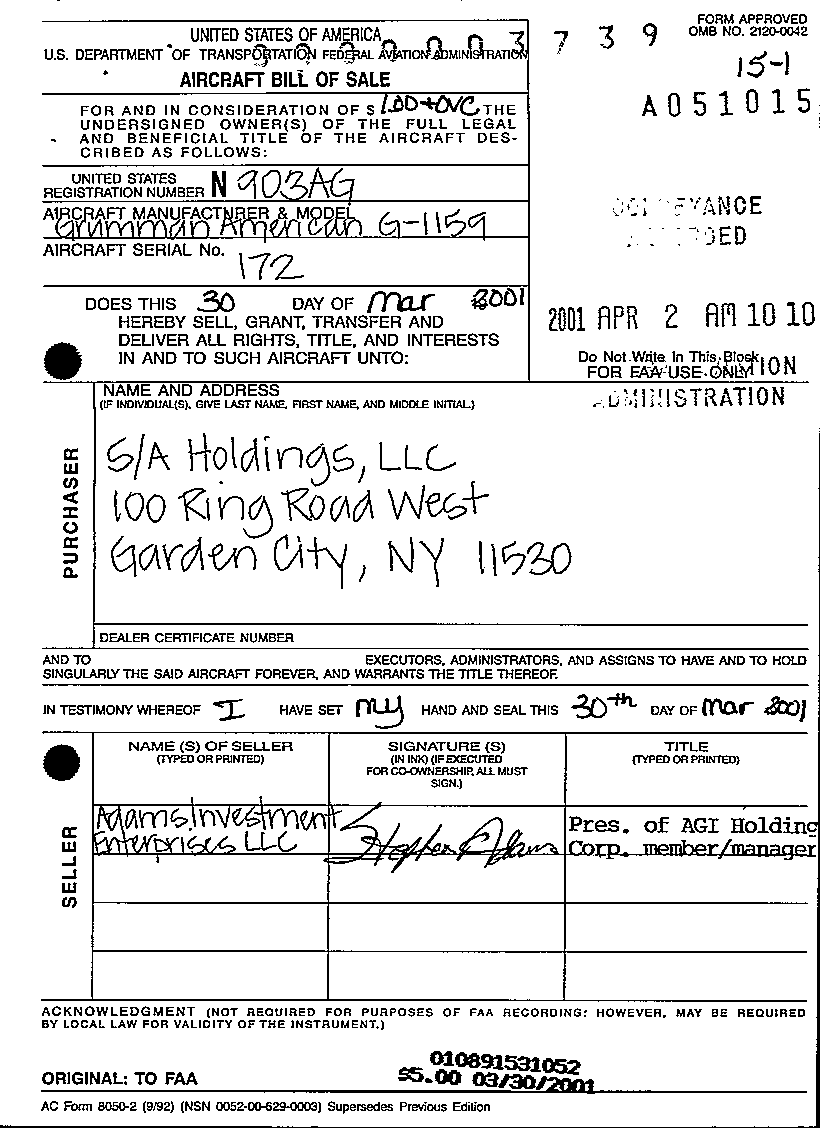 FORM APPROVED
OMB NO. 2120-0042
UNITED STATES OF AMERICA
U.S. DEPARTMENT OF TRANSPORTATION FEDERAL AVIATION ADMINISTRATION
0 0 0 0 0 3 7 3 9
AIRCRAFT BILL OF SALE
15-1
A051015
FOR AND IN CONSIDERATION OF $ 1.00+OVC THE
UNDERSIGNED OWNER(S) OF THE FULL LEGAL
AND BENEFICIAL TITLE OF THE AIRCRAFT DES-
CRIBED AS FOLLOWS:
UNITED STATES
REGISTRATION NUMBER N 903AG
AIRCRAFT MANUFACTURER & MODEL
Grumman American G-1159
AIRCRAFT SERIAL No.
172
DOES THIS 30 DAY OF Mar 2001
HEREBY SELL, GRANT, TRANSFER AND
DELIVER ALL RIGHTS, TITLE, AND INTERESTS
IN AND TO SUCH AIRCRAFT UNTO:
2001 APR 2 AM 10 10
Do Not Write In This Block
FOR FAA USE ONLY
ADMINISTRATION
NAME AND ADDRESS
(IF INDIVIDUAL(S), GIVE LAST NAME, FIRST NAME, AND MIDDLE INITIAL.)
PURCHASER
S/A Holdings, LLC
100 Ring Road West
Garden City, NY 11530
DEALER CERTIFICATE NUMBER
AND TO EXECUTORS, ADMINISTRATORS, AND ASSIGNS TO HAVE AND TO HOLD
SINGULARLY THE SAID AIRCRAFT FOREVER, AND WARRANTS THE TITLE THEREOF.
IN TESTIMONY WHEREOF I HAVE SET my HAND AND SEAL THIS 30th DAY OF Mar 2001
SELLER
NAME (S) OF SELLER
(TYPED OR PRINTED)
SIGNATURE (S)
(IN INK) (IF EXECUTED
FOR CO-OWNERSHIP, ALL MUST
SIGN.)
TITLE
(TYPED OR PRINTED)
Adams Investment
Enterprises LLC
Stephen Adams
Pres. of AGI Holding
Corp. member/manager
ACKNOWLEDGMENT (NOT REQUIRED FOR PURPOSES OF FAA RECORDING: HOWEVER, MAY BE REQUIRED
BY LOCAL LAW FOR VALIDITY OF THE INSTRUMENT.)
010891531052
$5.00 03/30/2001
ORIGINAL: TO FAA
AC Form 8050-2 (9/92) (NSN 0052-00-629-0003) Supersedes Previous Edition